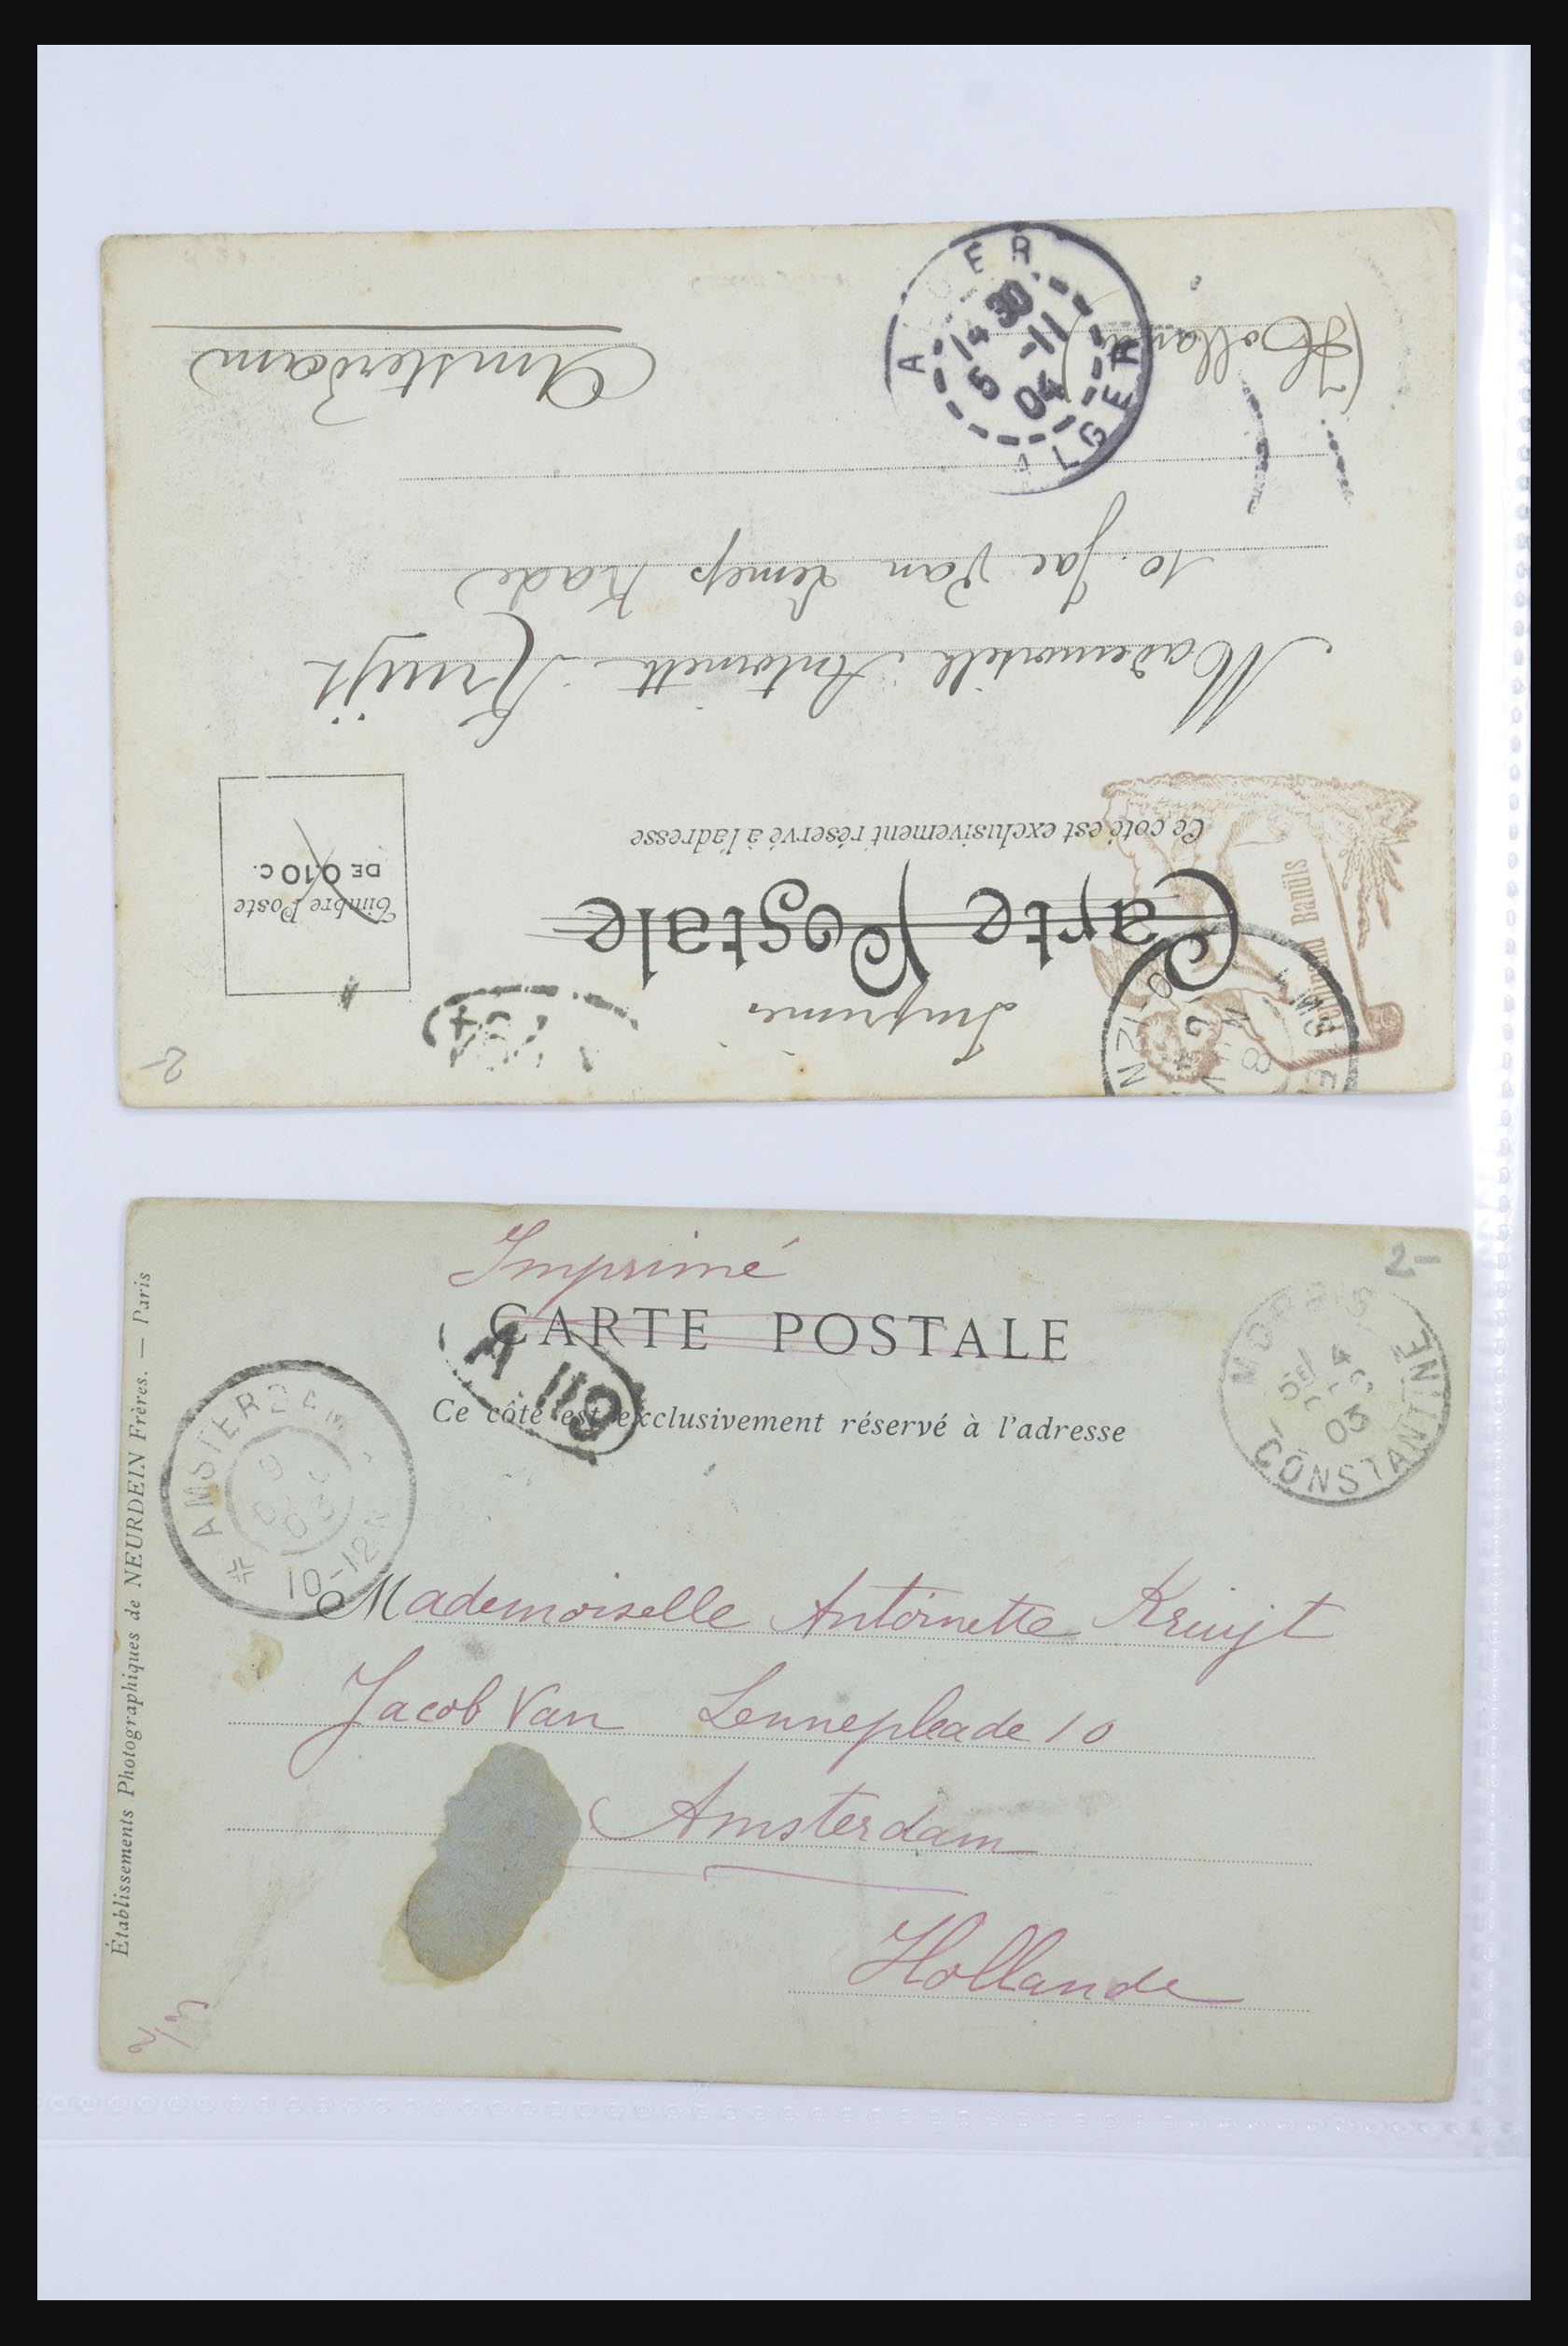 Imprimés
Carte Postale
Ce côté est exclusivement réservé à l'adresse
Timbre Poste
DE 0,10 c.
Mademoiselle Antoinette Kruijt
10. Jac Van Lennep Kade
Amsterdam
(Hollande)
ALGER
14 30
5 -11
04
ALGER
2-
Imprimé
CARTE POSTALE
Ce côté est exclusivement réservé à l'adresse
AMSTERDAM
9
03
10-12N
CONSTANTINE
4
03
2-
Mademoiselle Antoinette Kruijt
Jacob Van Lennepkade 10
Amsterdam
Hollande
Établissements Photographiques de NEURDEIN Frères. — Paris